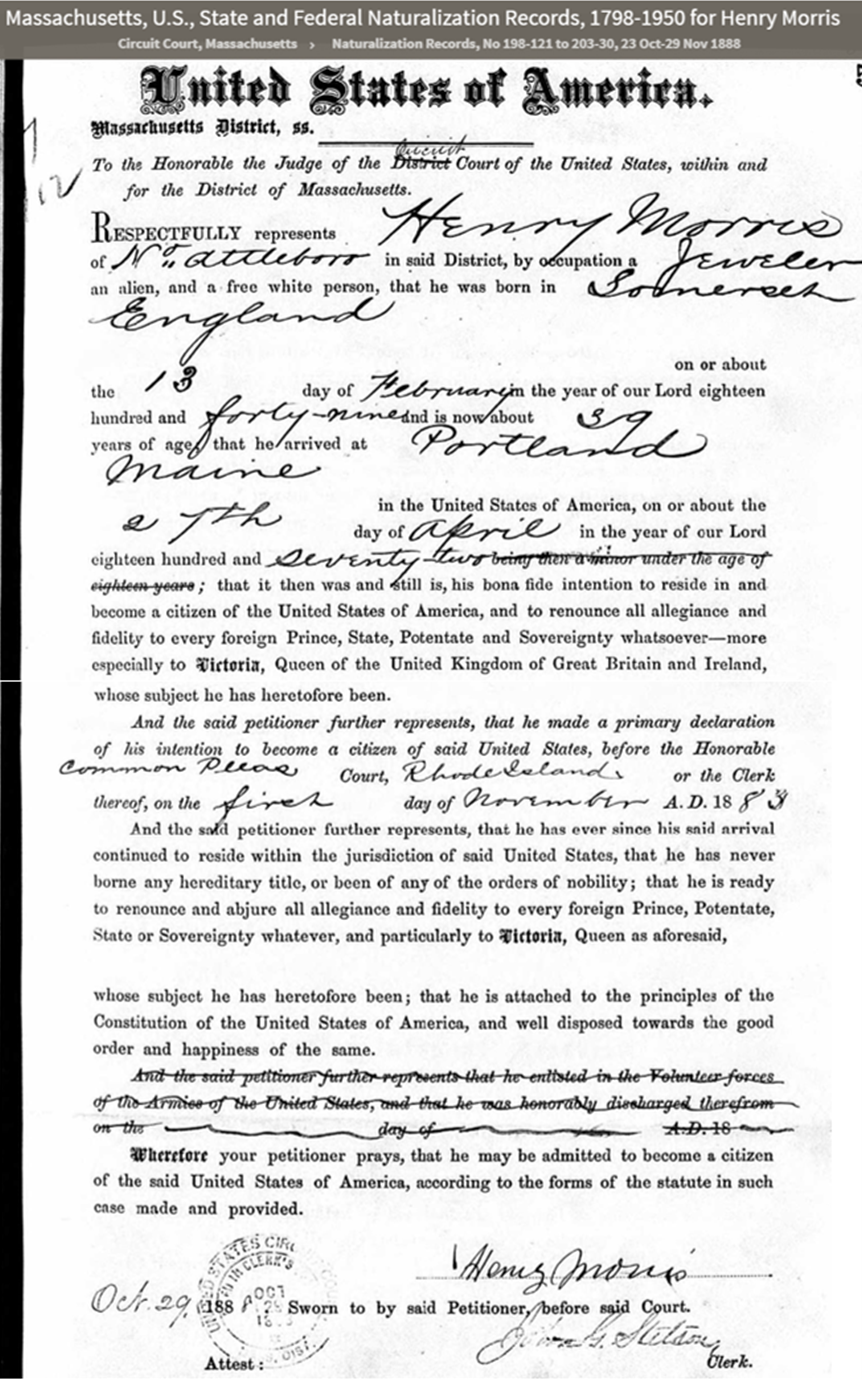 Massachusetts, U.S., State and Federal Naturalization Records, 1798-1950 for Henry Morris
Circuit Court, Massachusetts › Naturalization Records, No 198-121 to 203-30, 23 Oct-29 Nov 1888
United States of America.
Massachusetts District, ss.
Circuit
To the Honorable the Judge of the District Court of the United States, within and
for the District of Massachusetts.
RESPECTFULLY represents Henry Morris
of No. Attleboro in said District, by occupation a Jeweler
an alien, and a free white person, that he was born in Somerset
England
on or about
the 13 day of February in the year of our Lord eighteen
hundred and forty-nine and is now about 39
years of age, that he arrived at Portland
Maine
in the United States of America, on or about the
27th day of April in the year of our Lord
eighteen hundred and seventy-two being then a minor under the age of
eighteen years; that it then was and still is, his bona fide intention to reside in and
become a citizen of the United States of America, and to renounce all allegiance and
fidelity to every foreign Prince, State, Potentate and Sovereignty whatsoever—more
especially to Victoria, Queen of the United Kingdom of Great Britain and Ireland,
whose subject he has heretofore been.
And the said petitioner further represents, that he made a primary declaration
of his intention to become a citizen of said United States, before the Honorable
Common Pleas Court, Rhode Island or the Clerk
thereof, on the first day of November A. D. 1883
And the said petitioner further represents, that he has ever since his said arrival
continued to reside within the jurisdiction of said United States, that he has never
borne any hereditary title, or been of any of the orders of nobility; that he is ready
to renounce and abjure all allegiance and fidelity to every foreign Prince, Potentate,
State or Sovereignty whatever, and particularly to Victoria, Queen as aforesaid,
whose subject he has heretofore been; that he is attached to the principles of the
Constitution of the United States of America, and well disposed towards the good
order and happiness of the same.
And the said petitioner further represents that he enlisted in the Volunteer forces
of the Armies of the United States, and that he was honorably discharged therefrom
on the day of A.D. 18
Wherefore your petitioner prays, that he may be admitted to become a citizen
of the said United States of America, according to the forms of the statute in such
case made and provided.
Henry Morris
Oct. 29, 188 Sworn to by said Petitioner, before said Court.
John G. Stetson
Attest: Clerk.